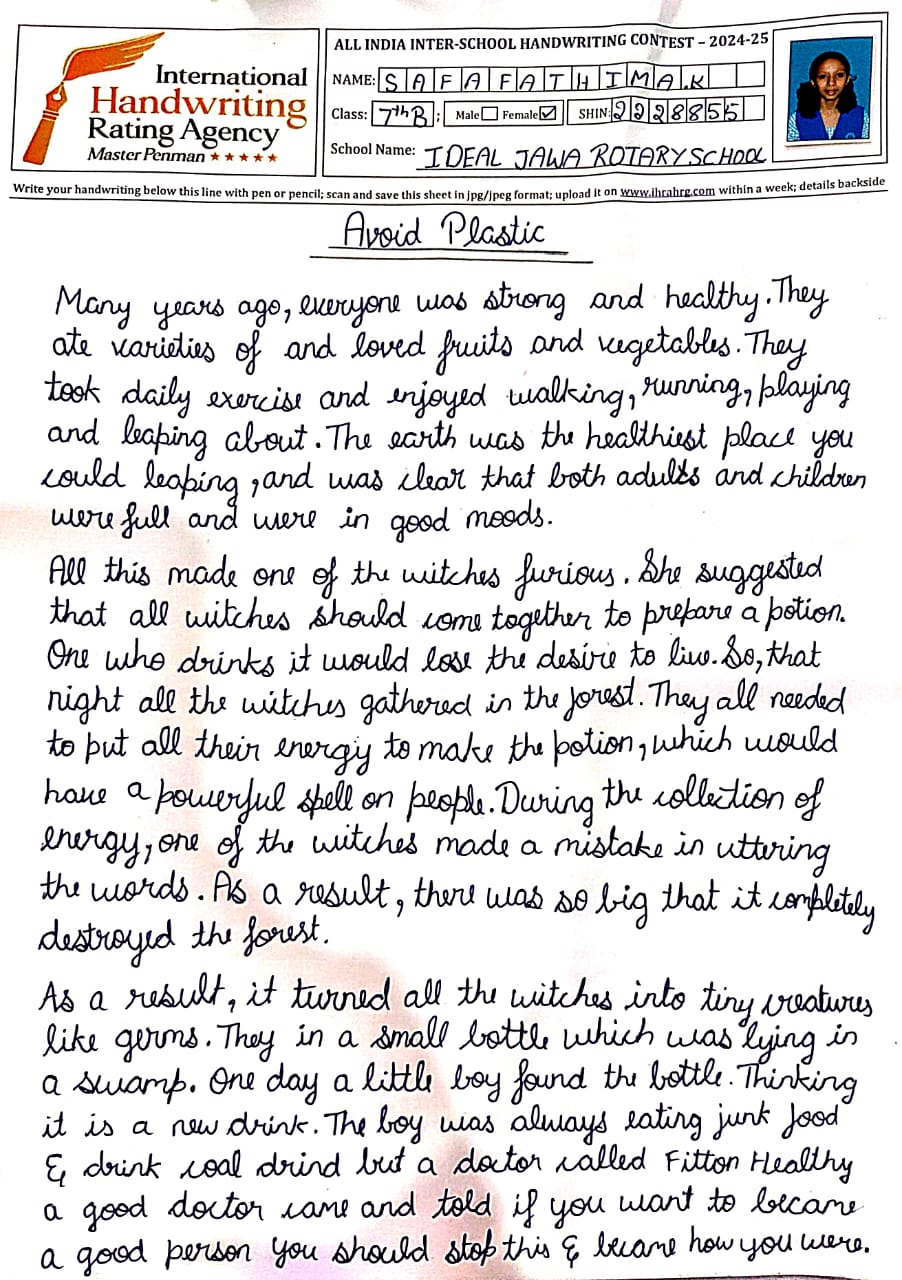 International
Handwriting
Rating Agency
Master Penman ★★★★★
ALL INDIA INTER-SCHOOL HANDWRITING CONTEST – 2024-25
NAME: SAFA FATHIMA.K
Class: 7th B; Male☐ Female☑ SHIN: 2228855
School Name: IDEAL JAWA ROTARY SCHOOL
Write your handwriting below this line with pen or pencil; scan and save this sheet in jpg/jpeg format; upload it on www.ihrahrg.com within a week; details backside
Avoid Plastic
Many years ago, everyone was strong and healthy. They
ate varieties of and loved fruits and vegetables. They
took daily exercise and enjoyed walking, running, playing
and leaping about. The earth was the healthiest place you
could leaping, and was clear that both adults and children
were full and were in good moods.
All this made one of the witches furious. She suggested
that all witches should come together to prepare a potion.
One who drinks it would lose the desire to live. So, that
night all the witches gathered in the forest. They all needed
to put all their energy to make the potion, which would
have a powerful spell on people. During the collection of
energy, one of the witches made a mistake in uttering
the words. As a result, there was so big that it completely
destroyed the forest.
As a result, it turned all the witches into tiny creatures
like germs. They in a small bottle which was lying in
a swamp. One day a little boy found the bottle. Thinking
it is a new drink. The boy was always eating junk food
& drink coal drind but a doctor called Fitton Healthy
a good doctor came and told if you want to became
a good person you should stop this & became how you were.